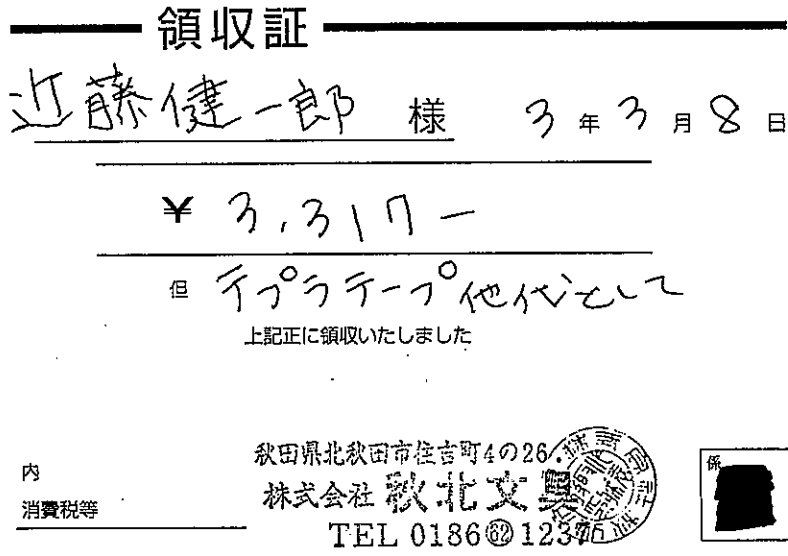 領収証
近藤健一郎 様 3年3月8日
¥3,317-
但 テプラテープ他代として
上記正に領収いたしました
内
消費税等
秋田県北秋田市住吉町4の26
株式会社 秋北文具
TEL 0186㊷1237
係